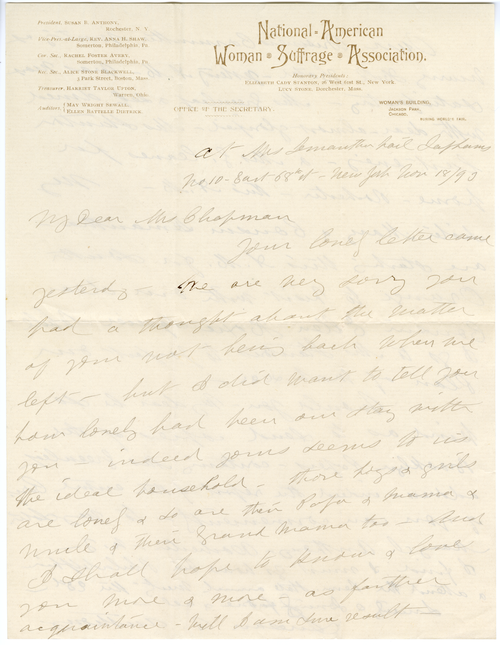 President, SUSAN B. ANTHONY,
Rochester, N. Y.
Vice-Pres.-at-Large, REV. ANNA H. SHAW,
Somerton, Philadelphia, Pa.
Cor. Sec., RACHEL FOSTER AVERY,
Somerton, Philadelphia, Pa.
Rec. Sec., ALICE STONE BLACKWELL,
3 Park Street, Boston, Mass.
Treasurer, HARRIET TAYLOR UPTON,
Warren, Ohio.
Auditors, { MAY WRIGHT SEWALL,
ELLEN BATTELLE DIETRICK.
National-American
Woman Suffrage Association.
Honorary Presidents:
ELIZABETH CADY STANTON, 26 West 61st St., New York.
LUCY STONE, Dorchester, Mass.
OFFICE OF THE SECRETARY:
WOMAN'S BUILDING,
JACKSON PARK,
CHICAGO.
DURING WORLD'S FAIR.
At Mrs Semantha Lapham's
No. 10 - East 68th st - New York Nov 18/93
My Dear Mrs Chapman
Your lovely letter came
yesterday - We are very sorry you
had a thought about the matter
of your not being back when we
left - but I did want to tell you
how lovely had been our stay with
you indeed yours seems to us
the ideal household - those boys & girls
are lovely & so are their Papa & mama &
uncle & their Grand mama too - And
I shall hope to know & love
you more & more - as further
acquaintance - Will I am sure result -